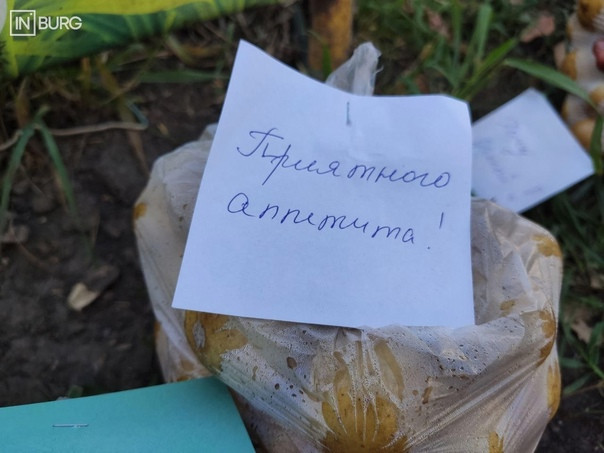 IN'BURG
Приятного
аппетита!